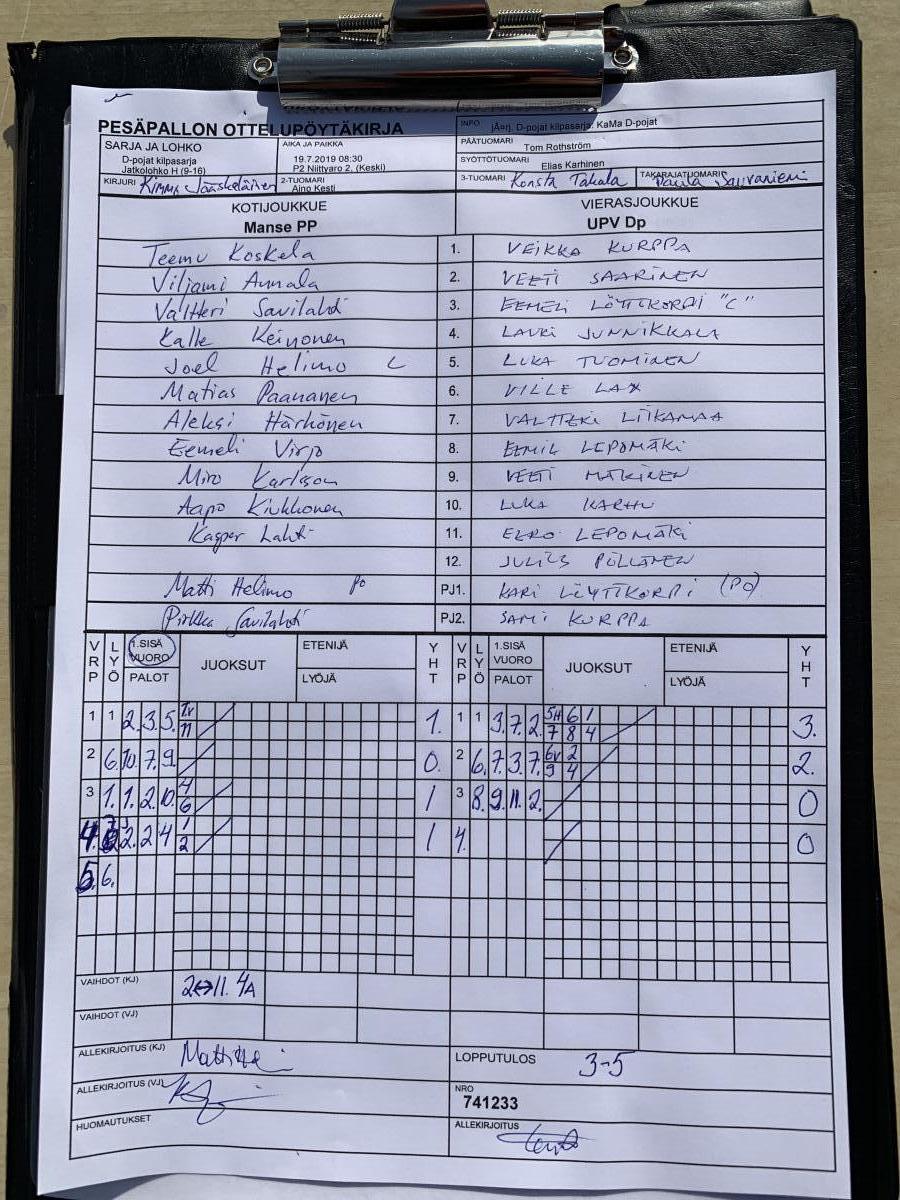 PESÄPALLON OTTELUPÖYTÄKIRJA
INFO jÄ¤rj. D-pojat kilpasarja: KaMa D-pojat
SARJA JA LOHKO
D-pojat kilpasarja
Jatkolohko H (9-16)
AIKA JA PAIKKA
19.7.2019 08:30
P2 Niittyaro 2, (Keski)
PÄÄTUOMARI Tom Rothström
SYÖTTÖTUOMARI Elias Karhinen
KIRJURI Kimmo Jääskeläinen
2-TUOMARI Aino Kesti
3-TUOMARI Konsta Takala
TAKARAJATUOMARI Paula Sauvaniemi
KOTIJOUKKUE VIERASJOUKKUE
Manse PP UPV Dp
Teemu Koskela 1. VEIKKA KURPPA
Viljami Annala 2. VEETI SAARINEN
Valtteri Savilahti 3. EEMELI LÖYTTIKORPI "C"
Kalle Keinonen 4. LAURI JUNNIKKALA
Joel Helimo C 5. LUKA TUOMINEN
Matias Paananen 6. VILLE LAX
Aleksi Härkönen 7. VALTTERI LIIKAMAA
Eemeli Virjo 8. EEMIL LEPOMÄKI
Miro Karlsson 9. VEETI MÄKINEN
Aapo Kiukkonen 10. LUKA KARHU
Kasper Lahti 11. EERO LEPOMÄKI
12. JULIUS PÖLLÄNEN
Matti Helimo Po PJ1. KARI LÖYTTIKORPI (PO)
Pirkka Savilahti PJ2. SAMI KURPPA
VRP LYÖ 1.SISÄ VUORO PALOT JUOKSUT ETENIJÄ LYÖJÄ YHT VRP LYÖ 1.SISÄ VUORO PALOT JUOKSUT ETENIJÄ LYÖJÄ YHT
1 1 2. 3. 5. 1v 1. 1 1 3. 7. 2. 5H 6 1 3.
11 7 8 4
2 6. 10. 7. 9. 0. 2 6. 7. 3. 7. 6v 2 2.
9 4
3 1. 1. 2. 10. 4 1 3 8. 9. 11. 2. 0
6
4. 2. 2 4 1 1 4. 0
2
5. 6.
VAIHDOT (KJ) 2↔11. 4A
VAIHDOT (VJ)
ALLEKIRJOITUS (KJ)
LOPPUTULOS 3-5
ALLEKIRJOITUS (VJ)
NRO
741233
HUOMAUTUKSET
ALLEKIRJOITUS